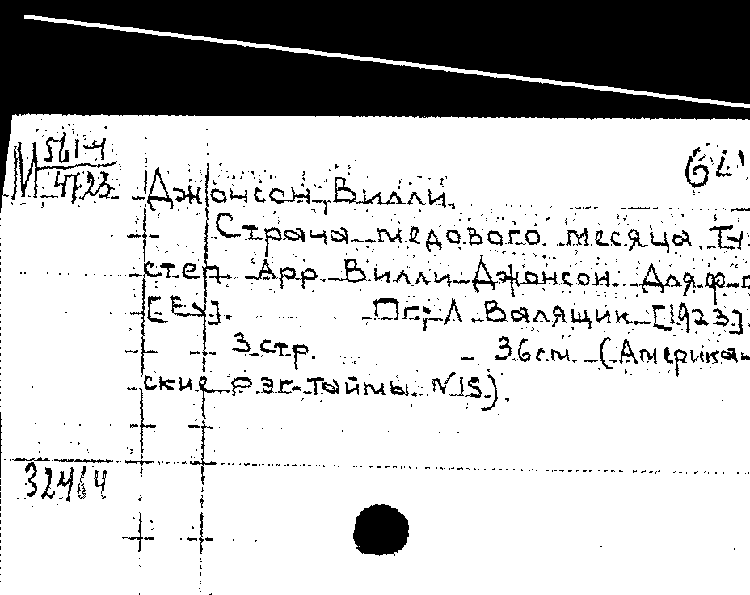 М 561-4
4723
64
Джонсон, Вилли.
Страна медового месяца. Ту-
степ. Арр. Вилли Джонсон. Для ф-п
[Es]. Пг; Л. Валящик [1923].
3 стр. 36 cm. (Американ-
ские рэг-таймы. N 15).
32464